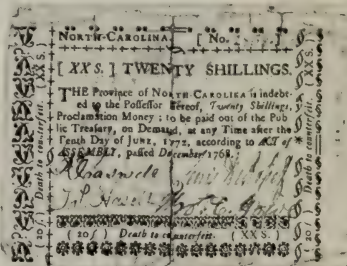 NORTH-CAROLINA. [ No. ]
[ XX S. ] TWENTY SHILLINGS.
THE Province of NORTH-CAROLINA is indebt-
ed to the Possessor hereof, Twenty Shillings,
Proclamation Money; to be paid out of the Pub
lic Treasury, on Demand, at any Time after the
Tenth Day of JUNE, 1772, according to ACT of
ASSEMBLY, passed December 1768.
( 20 s ) Death to counterfeit. ( XX S. )
( 20 s ) Death to counterfeit. XX S.
Death to counterfeit. XX S.